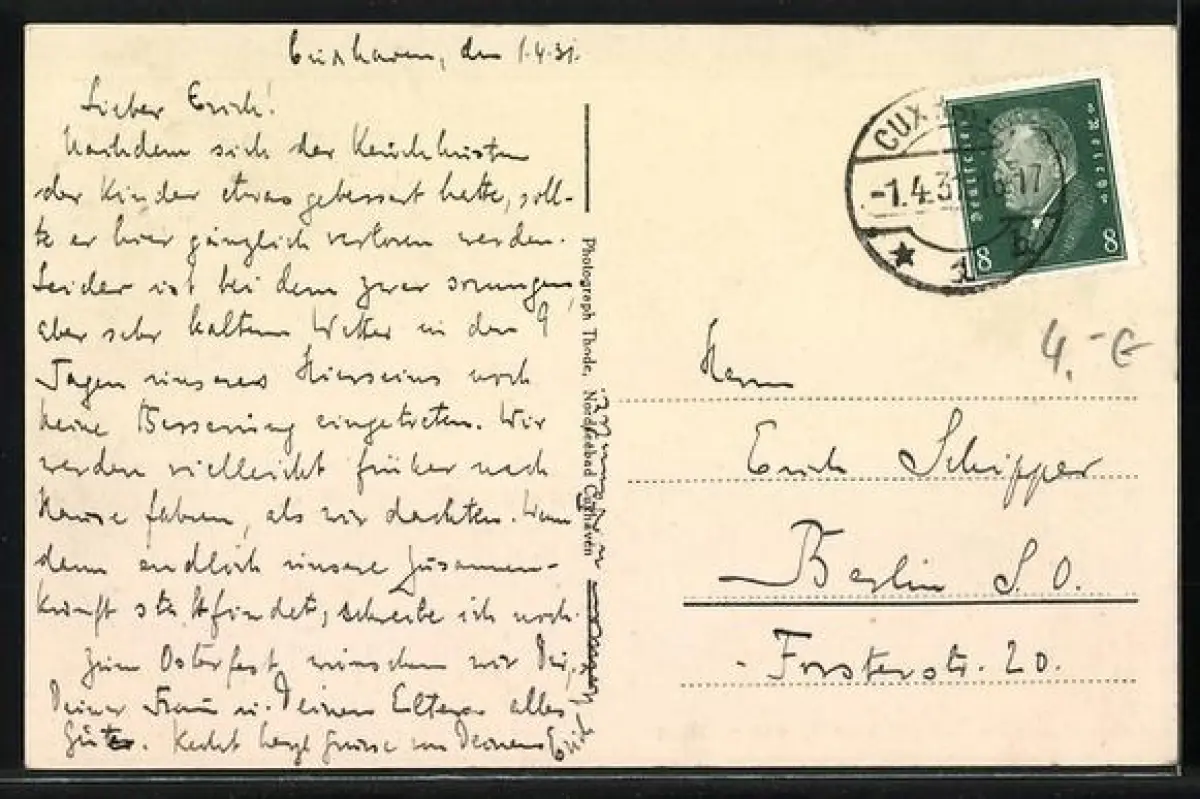 Cuxhaven, den 1.4.31.
Lieber Erich!
Nachdem sich der Keuchhusten
der Kinder etwas gebessert hatte, soll-
te er hier gänzlich verloren werden.
Leider ist bei dem zwar sonnigen,
aber sehr kaltem Wetter in den 9
Tagen unseres Hierseins noch
keine Besserung eingetreten. Wir
werden vielleicht früher nach
Hause fahren, als wir dachten. Wann
denn endlich unsere Zusammen-
kunft stattfindet, schreibe ich noch.
Zum Osterfest wünschen wir Dir,
Deiner Frau u. Deinen Eltern alles
Gute. Recht herzl. Grüsse von Deinem Erich
Photograph Thode, Nordseebad Cuxhaven
CUXHAVEN
-1.4.31.16-17
b
Deutsches Reich
8 8
4,- €
Herrn
Erich Schipper
Berlin S.O.
Forsterstr. 20.